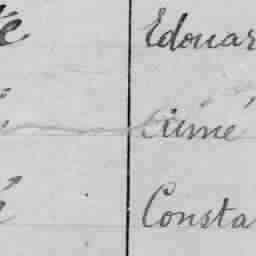 té Edouar
Aimé
Consta